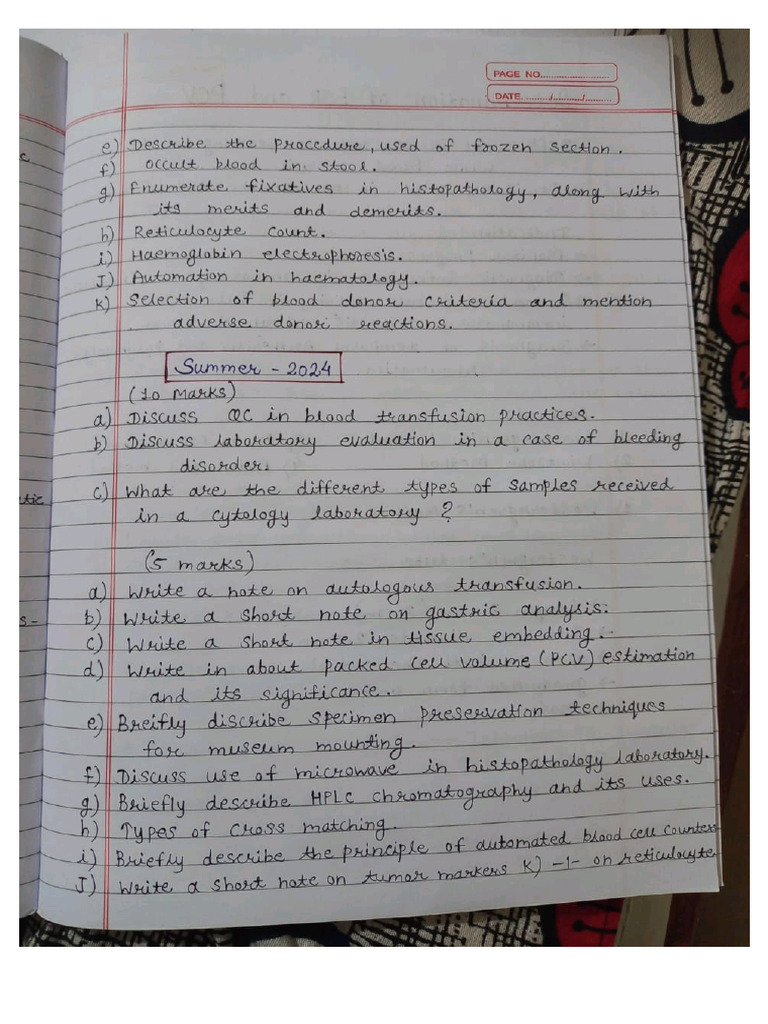 PAGE NO.
DATE / /
c
e) Describe the procedure, used of frozen section.
f) occult blood in stool.
g) Enumerate fixatives in histopathology, along with
its merits and demerits.
h) Reticulocyte count.
i) Haemoglobin electrophoresis.
J) Automation in haematology.
K) Selection of blood donor criteria and mention
adverse donor reactions.
Summer - 2024
(10 marks)
a) Discuss QC in blood transfusion practices.
b) Discuss laboratory evaluation in a case of bleeding
disorder.
tic
c) What are the different types of samples received
in a cytology laboratory ?
(5 marks)
a) Write a note on autologous transfusion.
s -
b) Write a short note on gastric analysis.
c) Write a short note in tissue embedding.
d) Write in about packed cell volume (PCV) estimation
and its significance.
e) Breifly discribe specimen preservation techniques
for museum mounting.
f) Discuss use of microwave in histopathology laboratory.
g) Briefly describe HPLC chromatography and its uses.
h) Types of cross matching.
i) Briefly describe the principle of automated blood cell counters
J) Write a short note on tumor markers K) -1- on reticulocyte